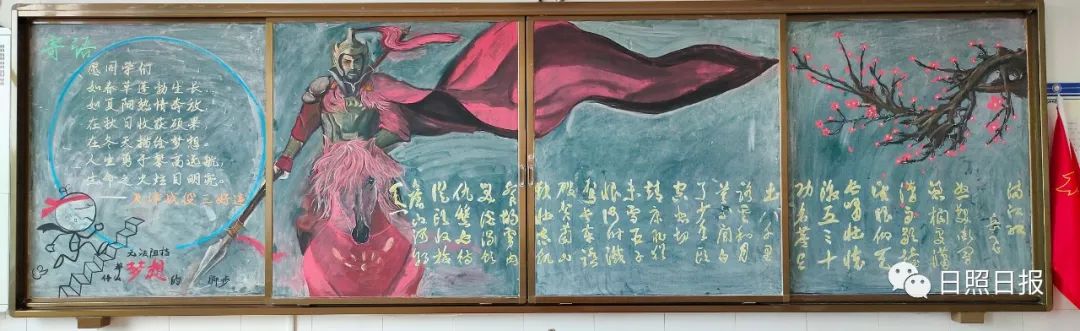 寄语
愿同学们
如春草蓬勃生长,
如夏阳热情奔放,
在秋日收获硕果,
在冬天描绘梦想。
人生勇于攀高远航,
生命之火炬日明亮。
无法阻挡
梦想的脚步
满江红
岳飞
怒发冲冠
凭栏处潇
潇雨歇抬
望眼仰天
长啸壮怀
激烈三十
功名尘与
土八千里
路云和月
莫等闲白
了少年头
空悲切
靖康耻犹
未雪臣子
恨何时灭
驾长车踏
破贺兰山
缺壮志饥
餐胡虏肉
笑谈渴饮
日照日报